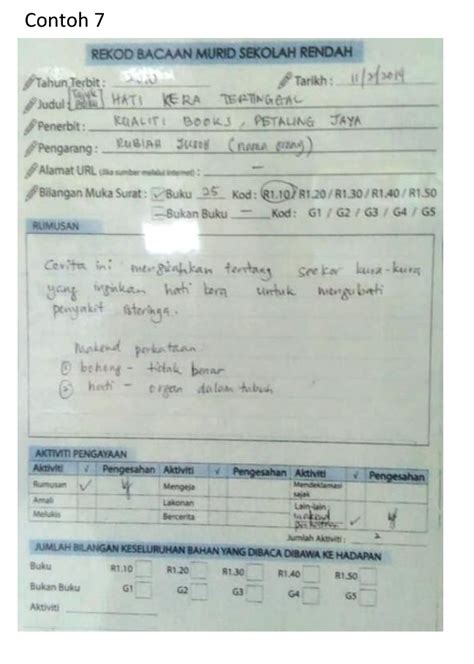 Contoh 7
REKOD BACAAN MURID SEKOLAH RENDAH
Tahun Terbit : 2010 Tarikh : 11/2/2014
Judul : Tajuk Buku HATI KERA TERTINGGAL
Penerbit : KUALITI BOOKS, PETALING JAYA
Pengarang : RUBIAH JUSOH (nama orang)
Alamat URL (Jika sumber melalui internet) : —
Bilangan Muka Surat : ✓ Buku 25 Kod : R1.10 / R1.20 / R1.30 / R1.40 / R1.50
— Bukan Buku — Kod : G1 / G2 / G3 / G4 / G5
RUMUSAN
Cerita ini mengisahkan tentang seekor kura-kura
yang inginkan hati kera untuk mengubati
penyakit isterinya.
Maksud perkataan
① bohong - tidak benar
② hati - organ dalam tubuh
AKTIVITI PENGAYAAN
Aktiviti √ Pengesahan Aktiviti √ Pengesahan Aktiviti √ Pengesahan
Rumusan ✓ Mengeja Mendeklamasi sajak
Amali Lakonan Lain-lain maksud perkataan ✓
Melukis Bercerita
Jumlah Aktiviti : 2
JUMLAH BILANGAN KESELURUHAN BAHAN YANG DIBACA DIBAWA KE HADAPAN
Buku R1.10 R1.20 R1.30 R1.40 R1.50
Bukan Buku G1 G2 G3 G4 G5
Aktiviti